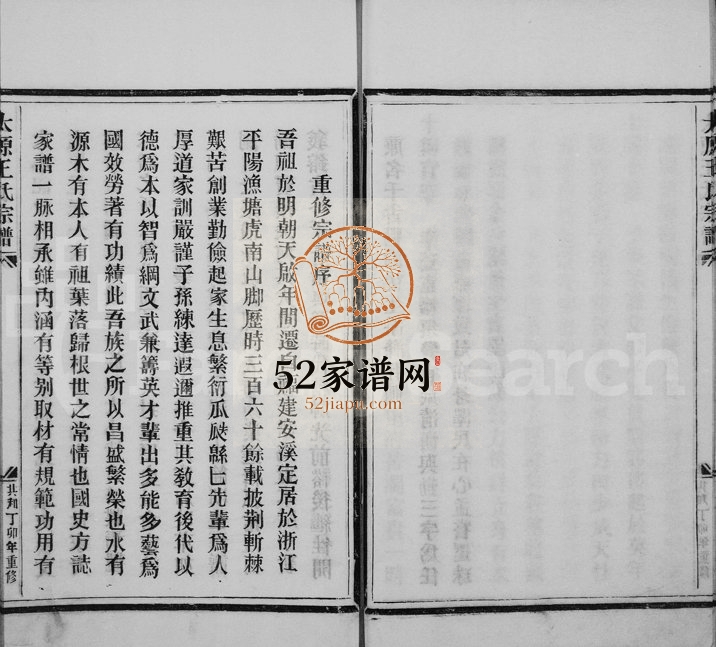 重修宗譜序
吾祖於明朝天啟年間遷自福建安溪定居於浙江
平陽漁塘虎南山脚歷時三百六十餘載披荆斬棘
艱苦創業勤儉起家生息繁衍瓜瓞緜匕先輩爲人
厚道家訓嚴謹子孫練達遐邇推重其教育後代以
德爲本以智爲綱文武兼籌英才輩出多能多藝爲
國效勞著有功績此吾族之所以昌盛繁榮也水有
源木有本人有祖葉落歸根世之常情也國史方誌
家譜一脉相承雖内涵有等别取材有規範功用有
太原王氏宗譜
丁卯年重修
太原王氏宗譜
丁卯年重修
52家谱网
52jiapu.com
Search